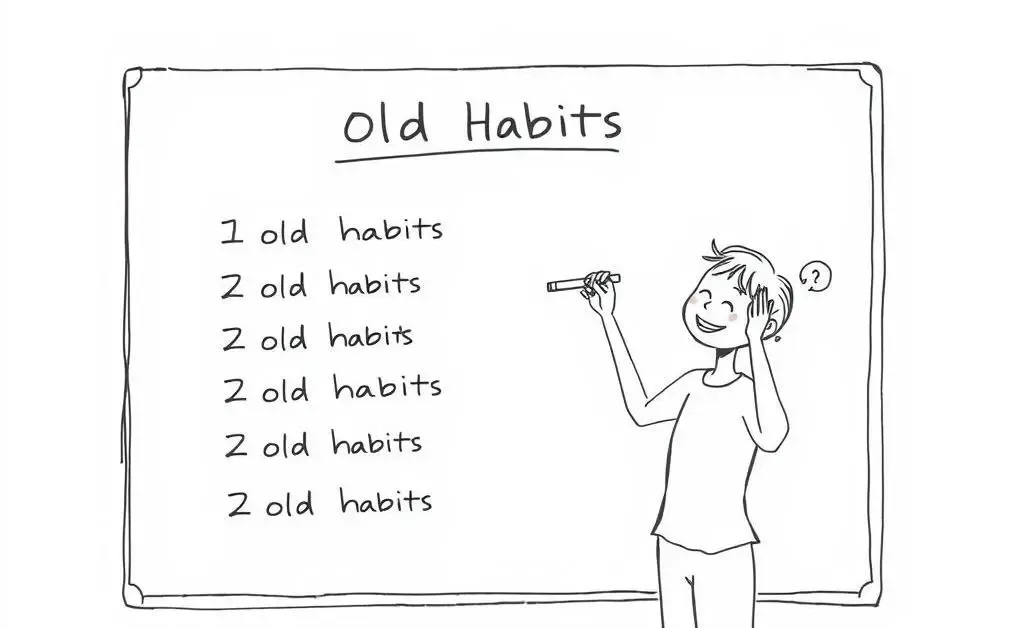 Old Habits
1 old habits
2 old habits
2 old habits
2 old habits
2 old habits
2 old habits
?